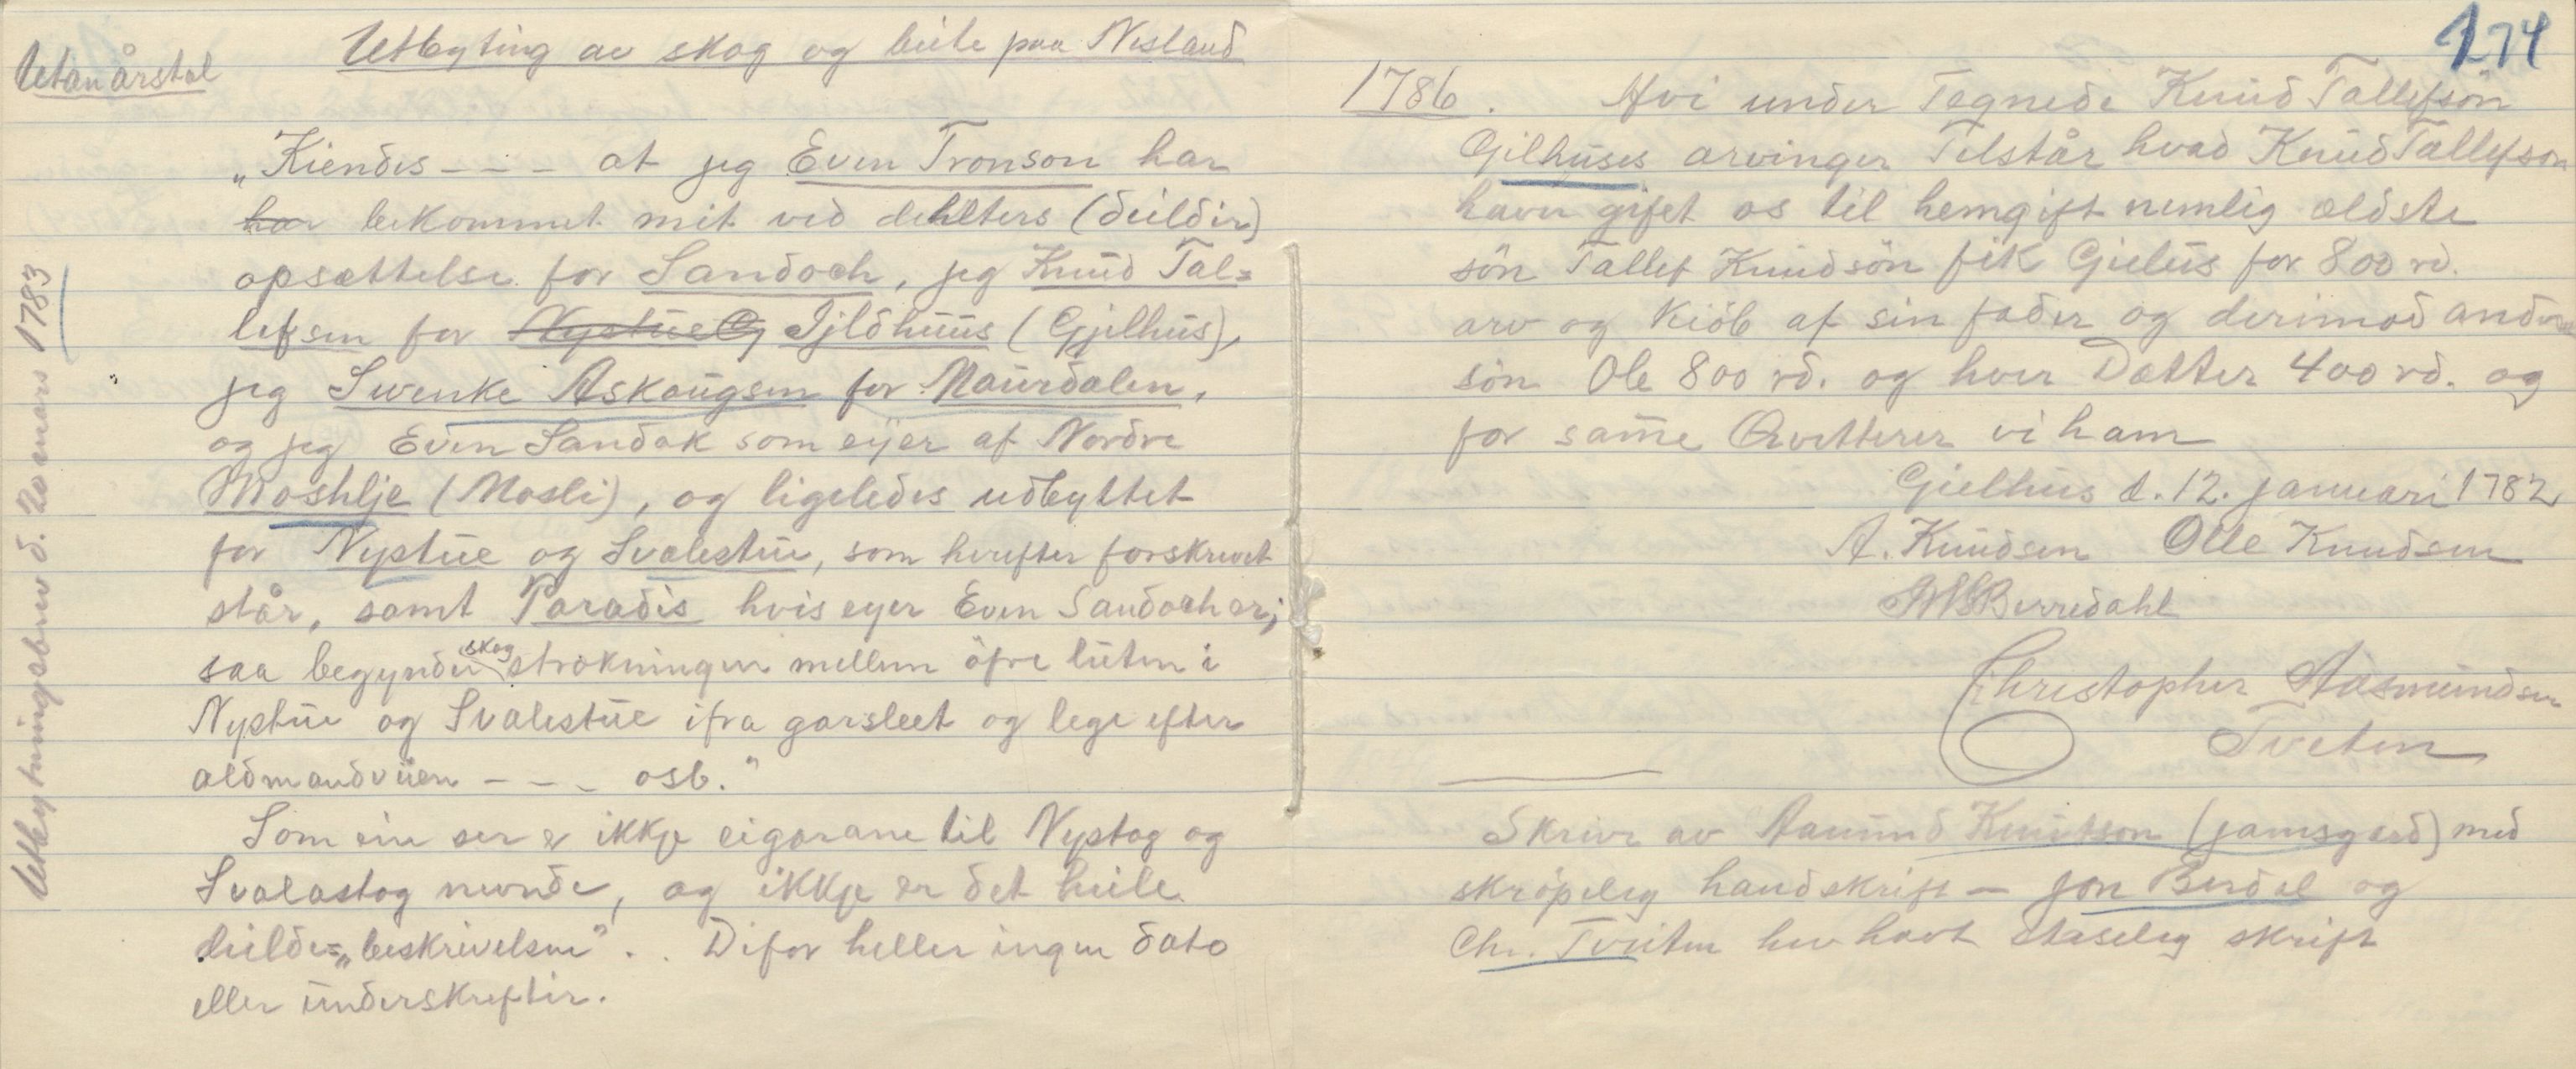 Utbyting av skog og beite paa Nesland
Utan årstal
„Kiendes - - - at jeg Even Tronson har
har bekommet mit ved dehlters (deildir)
opsættelse for Sandoch, jeg Knud Tal=
lefsen for Nystue Og Ijldhuus (Gjelhus),
jeg Swenke Askougsen for Maurdalen,
og jeg Even Sandok som eyer af Nordre
Moshlje (Mosli), og ligeledes udbyttet
for Nystue og Svalestue, som herefter forskrevet
står, samt Paradis hvis eyer Even Sandoch er;
saa begynder skog strækningen mellem öfre luten i
Nystue og Svalestue ifra garsleet og lege efter
aldmandviien - - - osb."
Som ein ser er ikkje eigarane til Nystog og
Svalastog nevnde, og ikkje er det heile
deilde=„beskrivelsen". Difor heller ingen dato
eller underskrefter.
Utbytningsbrev d. 20 mars 1783
174
1786. Hvi under Tegnede Knud Tallefsön
Gilhuses arvinger Tilstår hvad Knud Tallefson
haver gifet os til hemgift nemlig ældste
sön Tallef Knudsön fik Gielus for 800 rd.
arv og Kiöb af sin fader og derimod anden
sön Ole 800 rd. og hver Datter 400 rd. og
for same Qvetterer vi ham
Gielhus d. 12. januari 1782
A. Knudsen Olle Knudsen
Berredahl
Christopher Aasmundsen
Tveten
Skrive av Aamund Knutson (jamsgard) med
skröpeleg handskrift — Jon Berdal og
Chr. Tveiten hev havt staseleg skrift